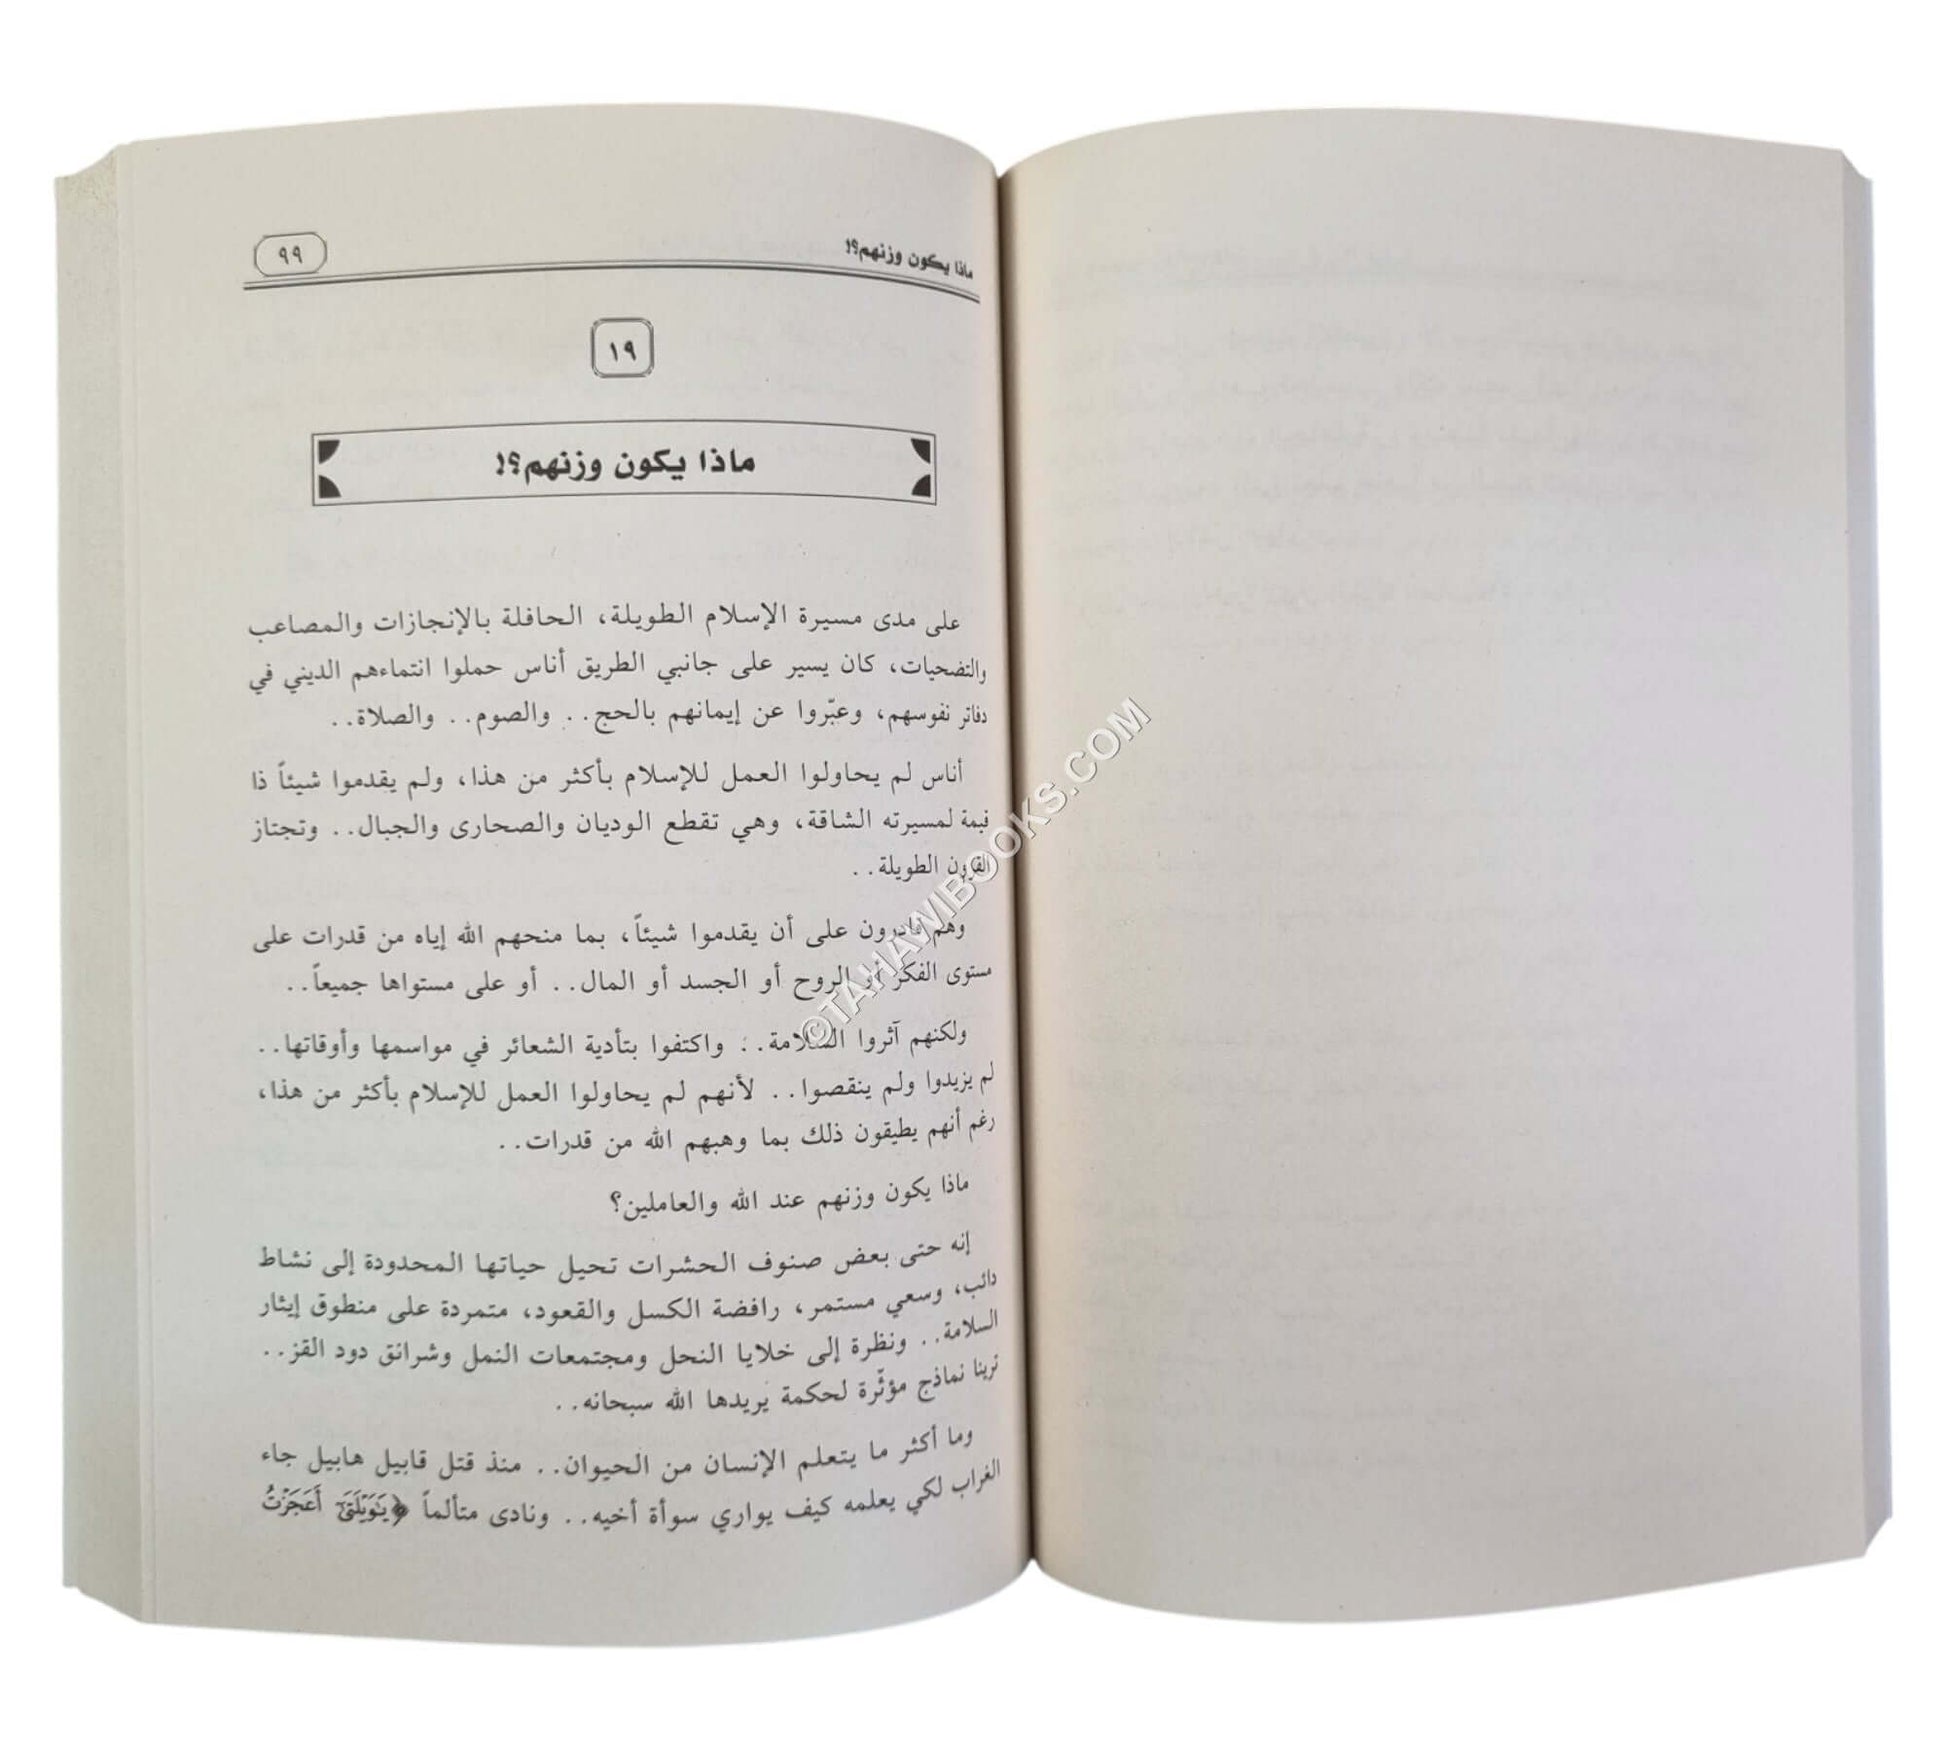 ماذا يكون وزنهم؟!
٩٩
١٩
ماذا يكون وزنهم؟!
على مدى مسيرة الإسلام الطويلة، الحافلة بالإنجازات والمصاعب
والتضحيات، كان يسير على جانبي الطريق أناس حملوا انتماءهم الديني في
دفاتر نفوسهم، وعبّروا عن إيمانهم بالحج.. والصوم.. والصلاة..
أناس لم يحاولوا العمل للإسلام بأكثر من هذا، ولم يقدموا شيئاً ذا
قيمة لمسيرته الشاقة، وهي تقطع الوديان والصحارى والجبال.. وتجتاز
القرون الطويلة..
وهم قادرون على أن يقدموا شيئاً، بما منحهم الله إياه من قدرات على
مستوى الفكر أو الروح أو الجسد أو المال.. أو على مستواها جميعاً..
ولكنهم آثروا السلامة.. واكتفوا بتأدية الشعائر في مواسمها وأوقاتها..
لم يزيدوا ولم ينقصوا.. لأنهم لم يحاولوا العمل للإسلام بأكثر من هذا،
رغم أنهم يطيقون ذلك بما وهبهم الله من قدرات..
ماذا يكون وزنهم عند الله والعاملين؟
إنه حتى بعض صنوف الحشرات تحيل حياتها المحدودة إلى نشاط
دائب، وسعي مستمر، رافضة الكسل والقعود، متمردة على منطوق إيثار
السلامة.. ونظرة إلى خلايا النحل ومجتمعات النمل وشرانق دود القز..
ترينا نماذج مؤثّرة لحكمة يريدها الله سبحانه..
وما أكثر ما يتعلم الإنسان من الحيوان.. منذ قتل قابيل هابيل جاء
الغراب لكي يعلمه كيف يواري سوأة أخيه.. ونادى متألماً ﴿يَٰوَيْلَتَىٰٓ أَعَجَزْتُ
©TAHAWIBOOKS.COM